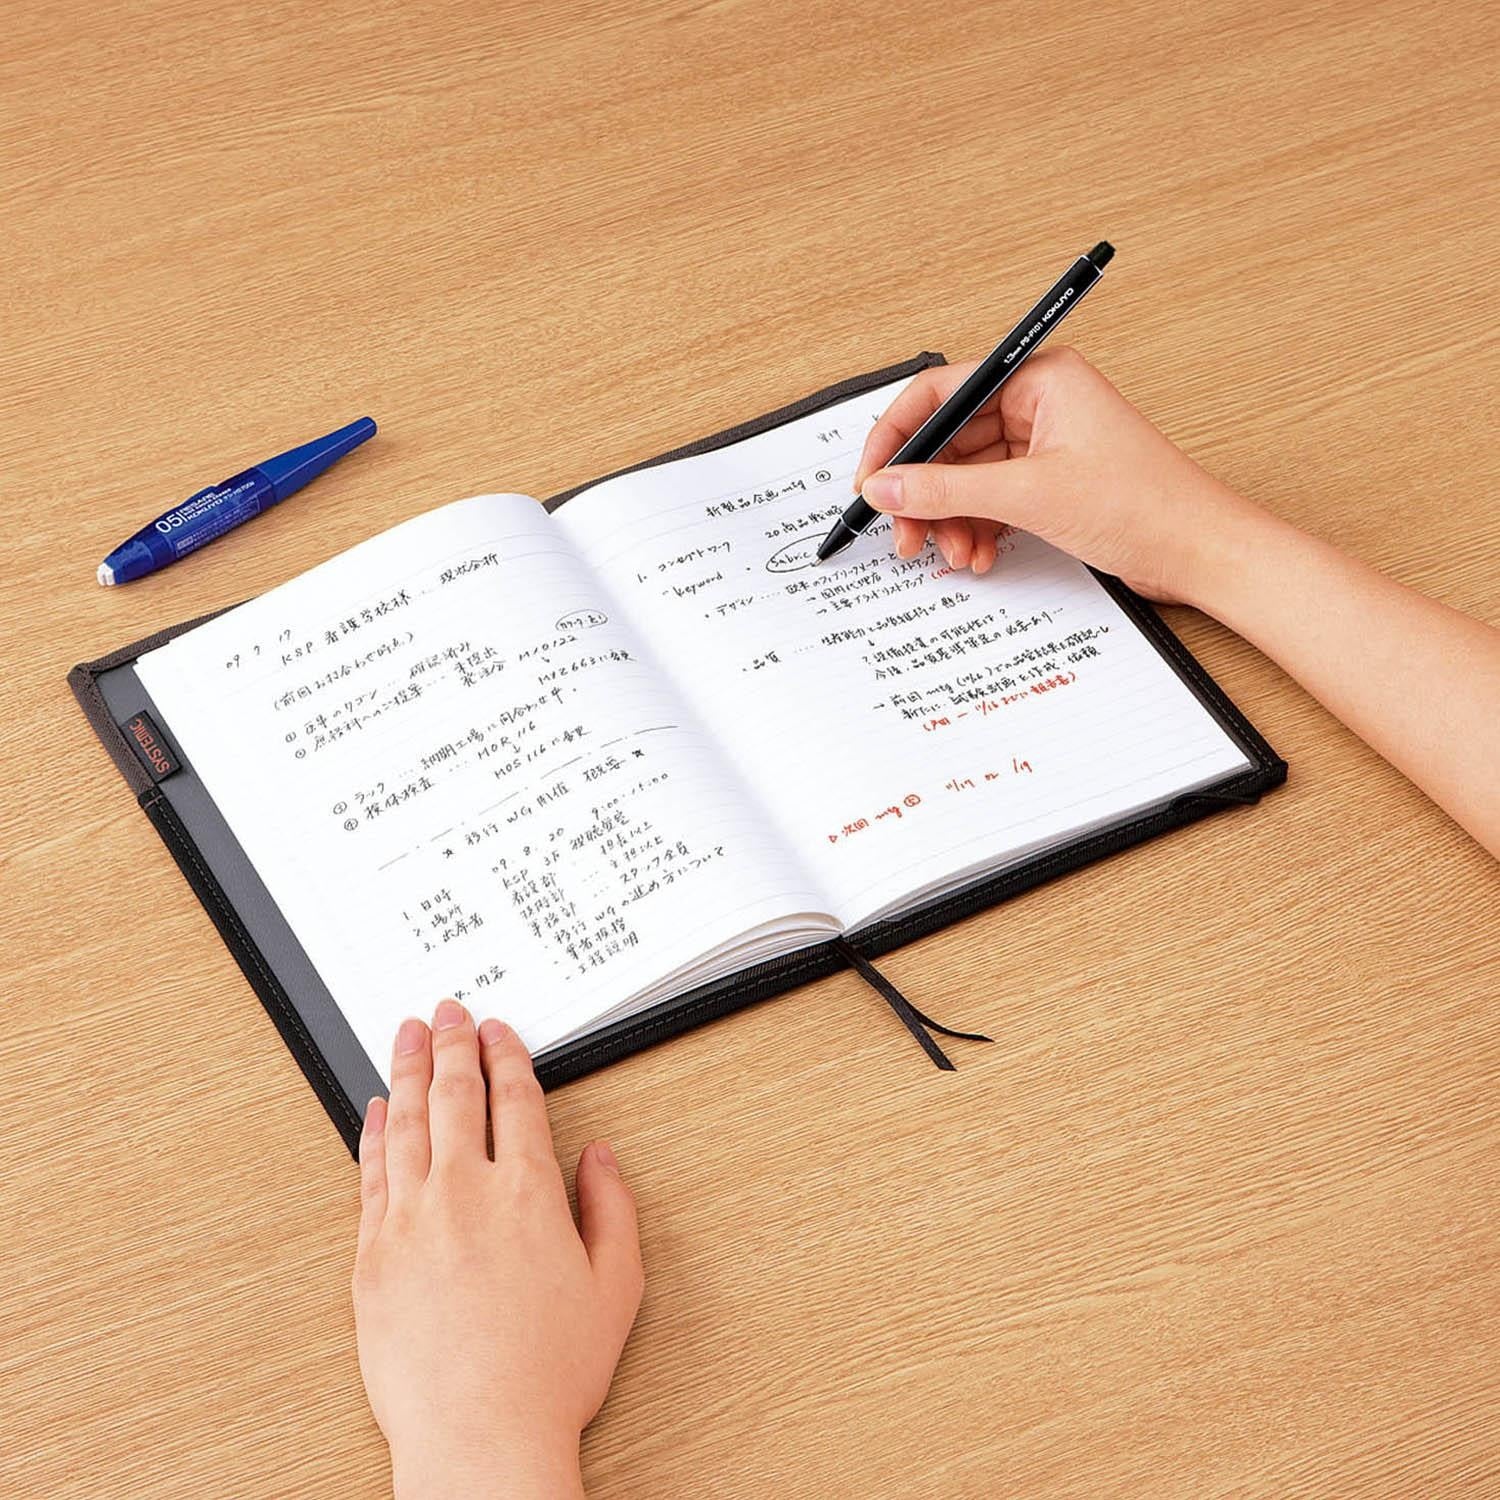 09 7 17
KSP 看護学校様 ... 現状分析
(前回お打合わせ時点)
① 在庫のワゴン ... 確認済み
② 原設科へのご提案 ... 未提出
発注分 M10122
↓
M1Z663に変更
③ ラック ... 納期工場に問合わせ中.
④ 検体検査 ... MOR116
↓
MOS116に変更
★ 移行WG開催 概要 ★
1. 日時 09. 8. 20 9:00-15:00
2. 場所 KSP 3F 視聴覚室
3. 出席者 看護部 ... 担長以上
技術部 ... 主担以上
事務部 ... スタッフ全員
4. 内容 ・移行WGの進め方について
・業者挨拶
・工程説明
SYSTEMIC
新製品企画mtg ④
20 商品戦略
1. コンセプトワーク
keyword ・ Sabric
・デザイン .... 既来のファブリックメーカーと
→ 国内代理店 リストアップ
→ 主要ブランドリストアップ
・品質 .... 生産能力と品質維持が懸念
↓
? 設備投資の可能性は?
今後、品質基準策定の必要あり...
→ 前回mtg での品管結果を確認し
新たに、試験計画を作成・依頼
▷ 次回 mtg ⑤ 11/17 or /19
1.3mm PS-P101 KOKUYO
05 RESARE
KOKUYO